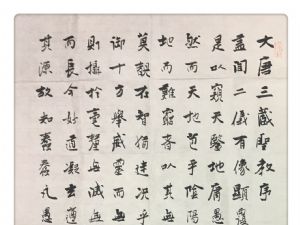 大唐三藏聖教序
盖聞二儀有像顯覆
是以窺天鑒地庸愚
然而天地苞乎陰陽
地而難窮者以其無
莫覩在智猶迷况乎
御十方舉威靈而無
則攝於毫釐無滅無
而長今妙道凝玄遵
其源故知蠢蠢凡愚